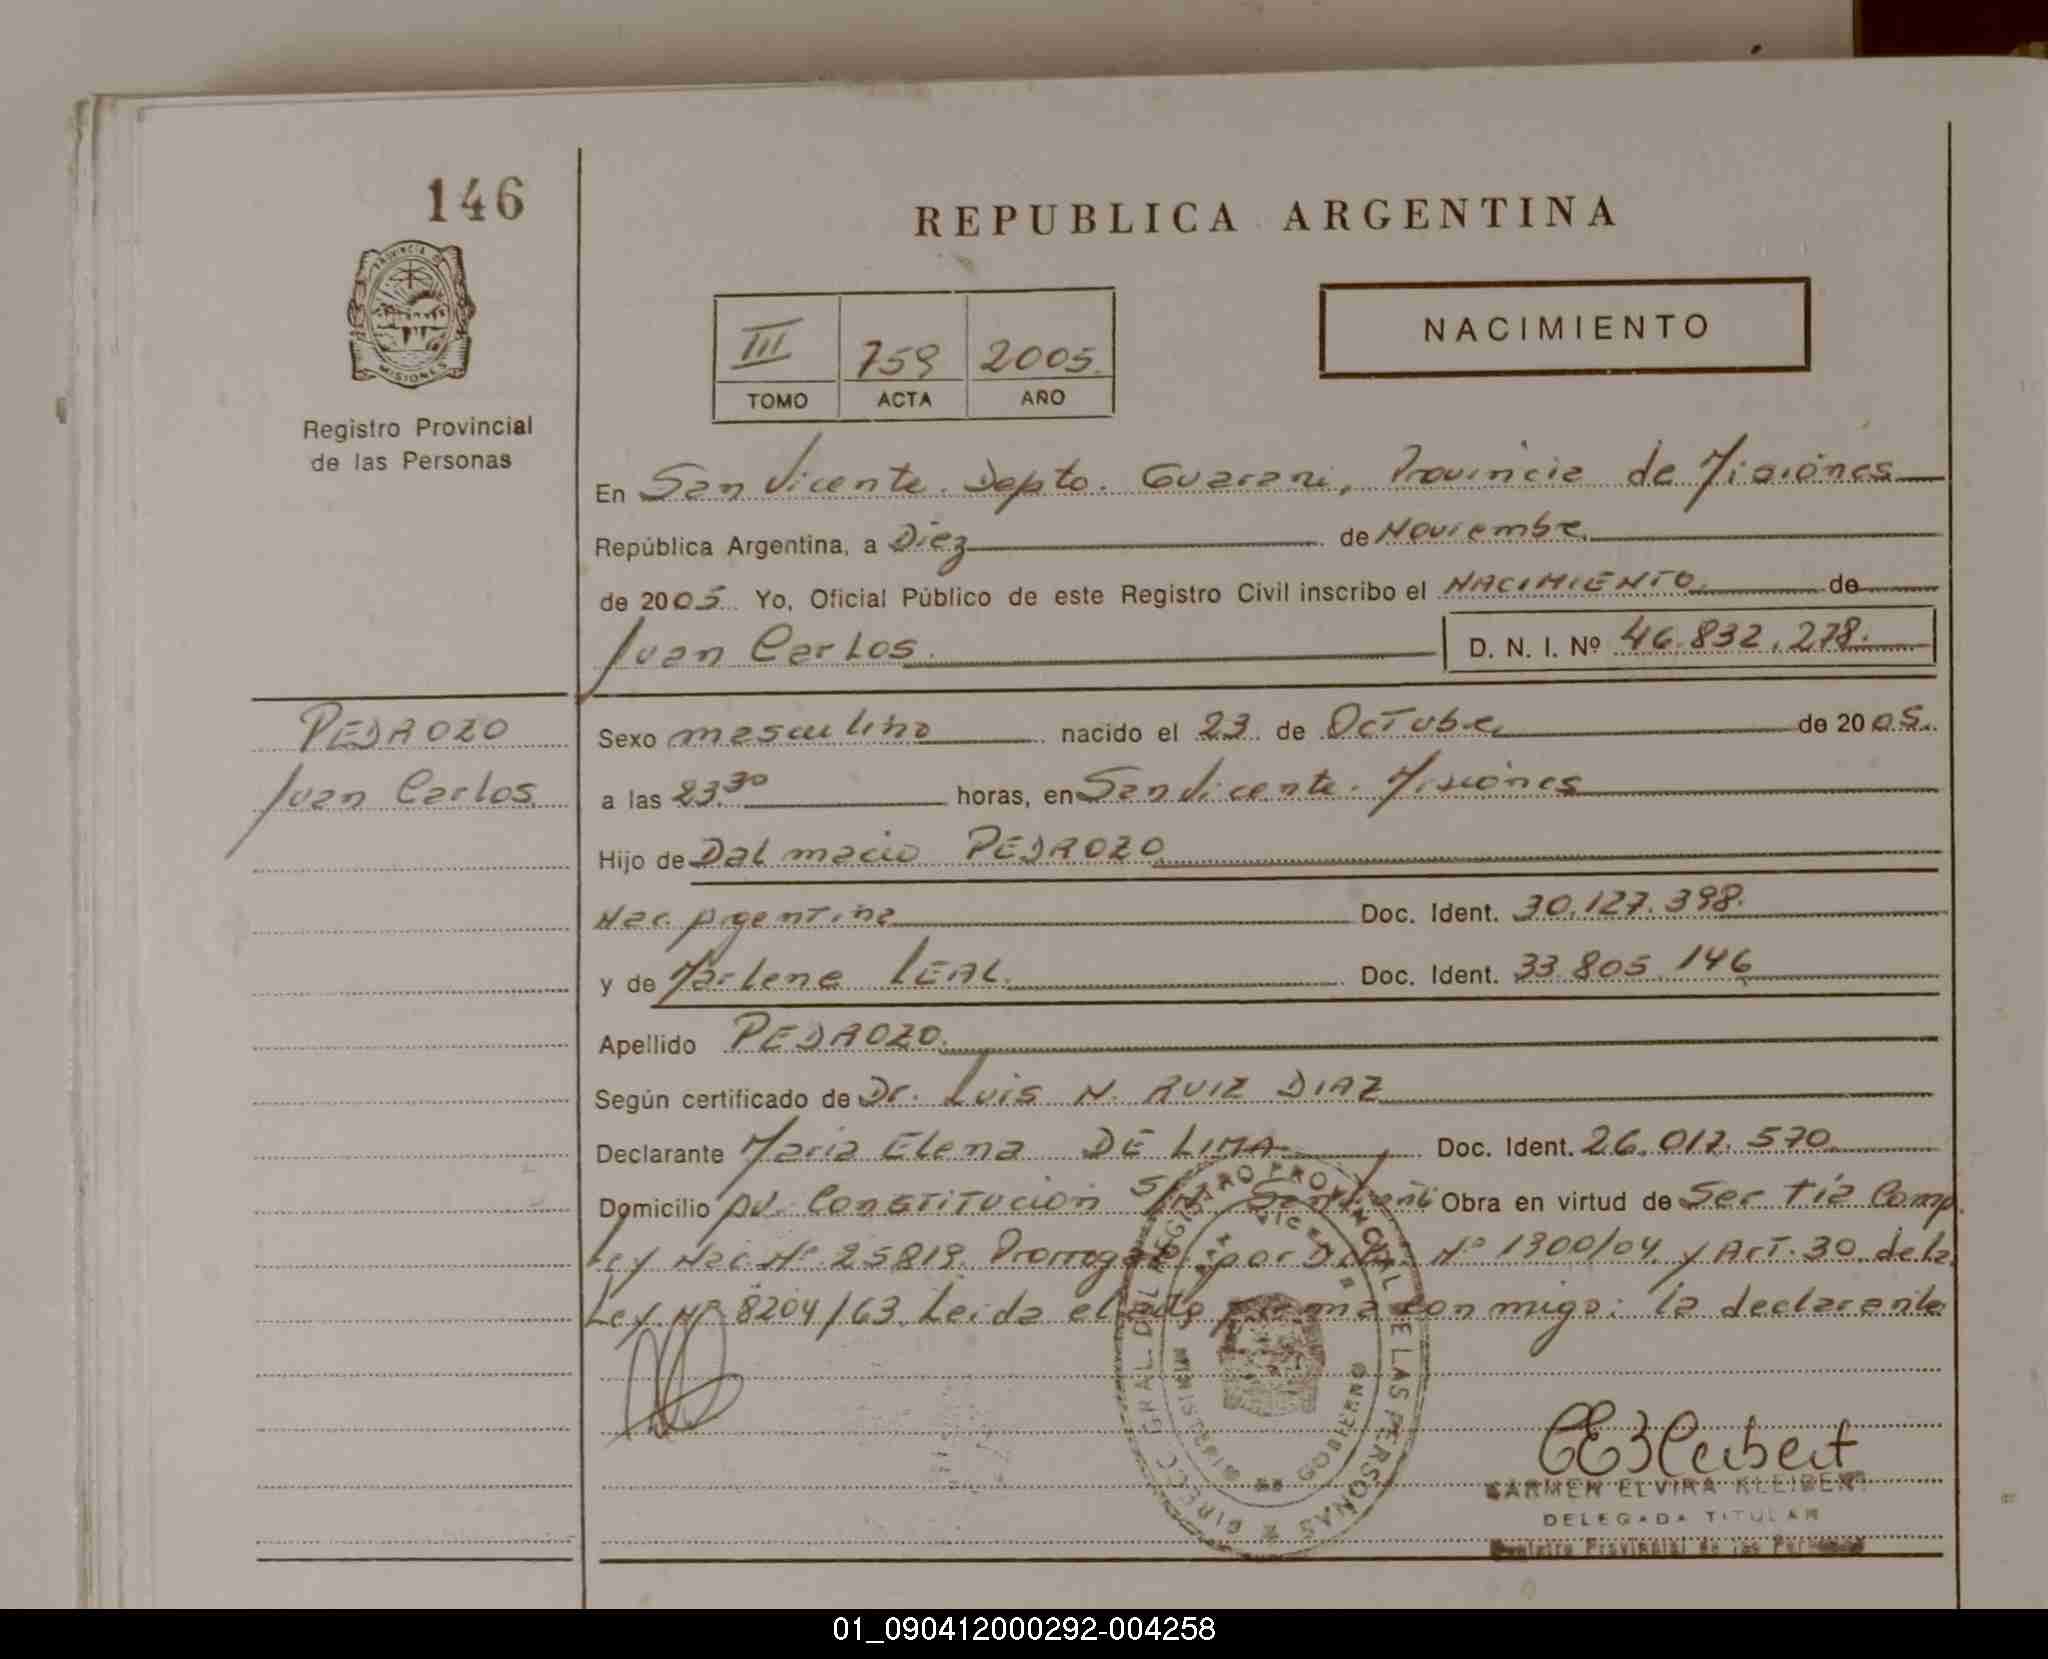 146
REPUBLICA ARGENTINA
PROVINCIA DE
MISIONES
Registro Provincial
de las Personas
III 759 2005
TOMO ACTA AÑO
NACIMIENTO
En San Vicente. Depto. Guarani, Provincia de Misiones
República Argentina, a Diez de Noviembre
de 2005 Yo, Oficial Público de este Registro Civil inscribo el NACIMIENTO de
Juan Carlos D. N. I. Nº 46.832.278.
PEDROZO
Juan Carlos
Sexo masculino nacido el 23 de Octubre de 2005.
a las 23.30 horas, en San Vicente. Misiones
Hijo de Dalmacio PEDROZO
Nac. Argentina Doc. Ident. 30.127.398.
y de Marlene LEAL. Doc. Ident. 33.805.146
Apellido PEDROZO.
Según certificado de Dr. Luis N. RUIZ DIAZ
Declarante Maria Elena DE LIMA Doc. Ident. 26.017.570
Domicilio Av. Constitucion S/N Obra en virtud de Ser tia Comp.
Ley Nac. Nº 25819. Prorrogada por Nº 1900/04 y Art. 30 de la
Ley Nº 8204/63. Leida el acta firma conmigo: la declarante
DIRECC. GRAL. DEL REGISTRO PROVINCIAL DE LAS PERSONAS
MINISTERIO DE GOBIERNO
CARMEN ELVIRA KLEIBERT
DELEGADA TITULAR
Registro Provincial de las Personas
01_090412000292-004258